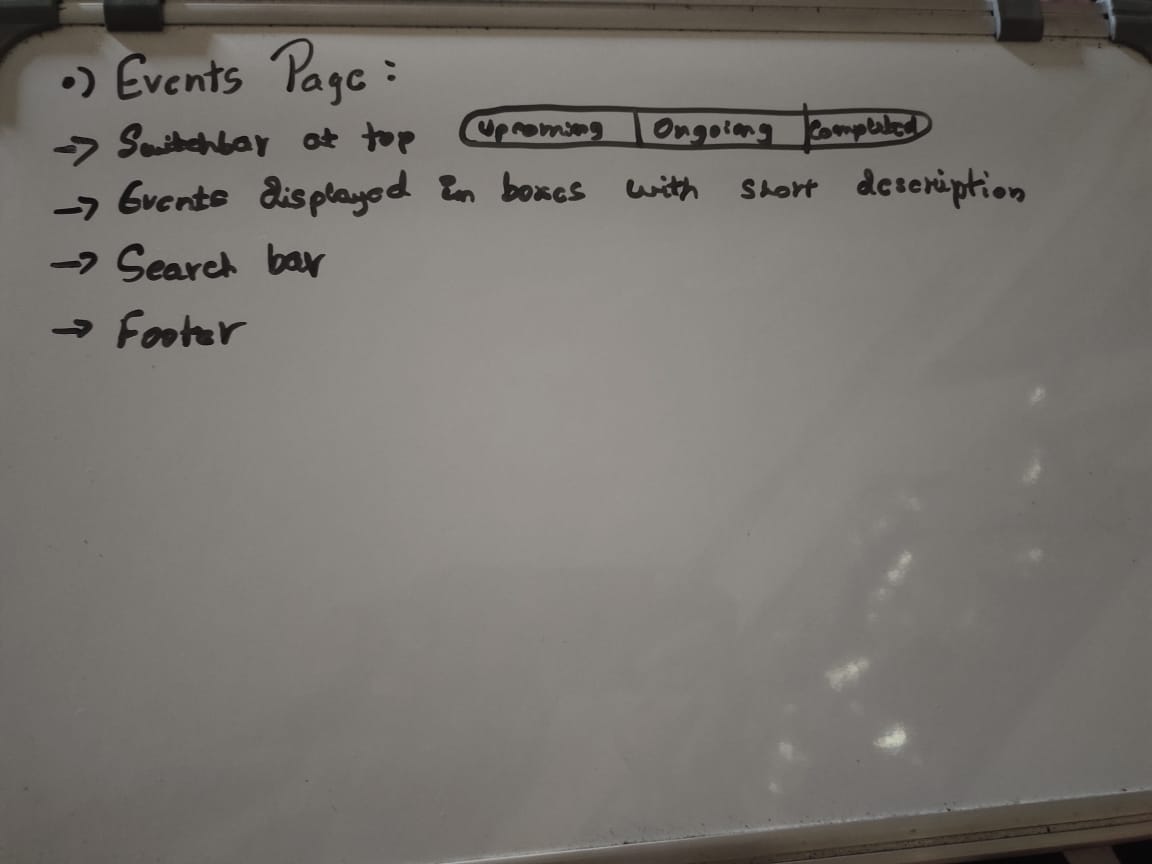 •) Events Page:
→ Switchbar at top Upcoming | Ongoing | Completed
→ Events displayed in boxes with short description
→ Search bar
→ Footer